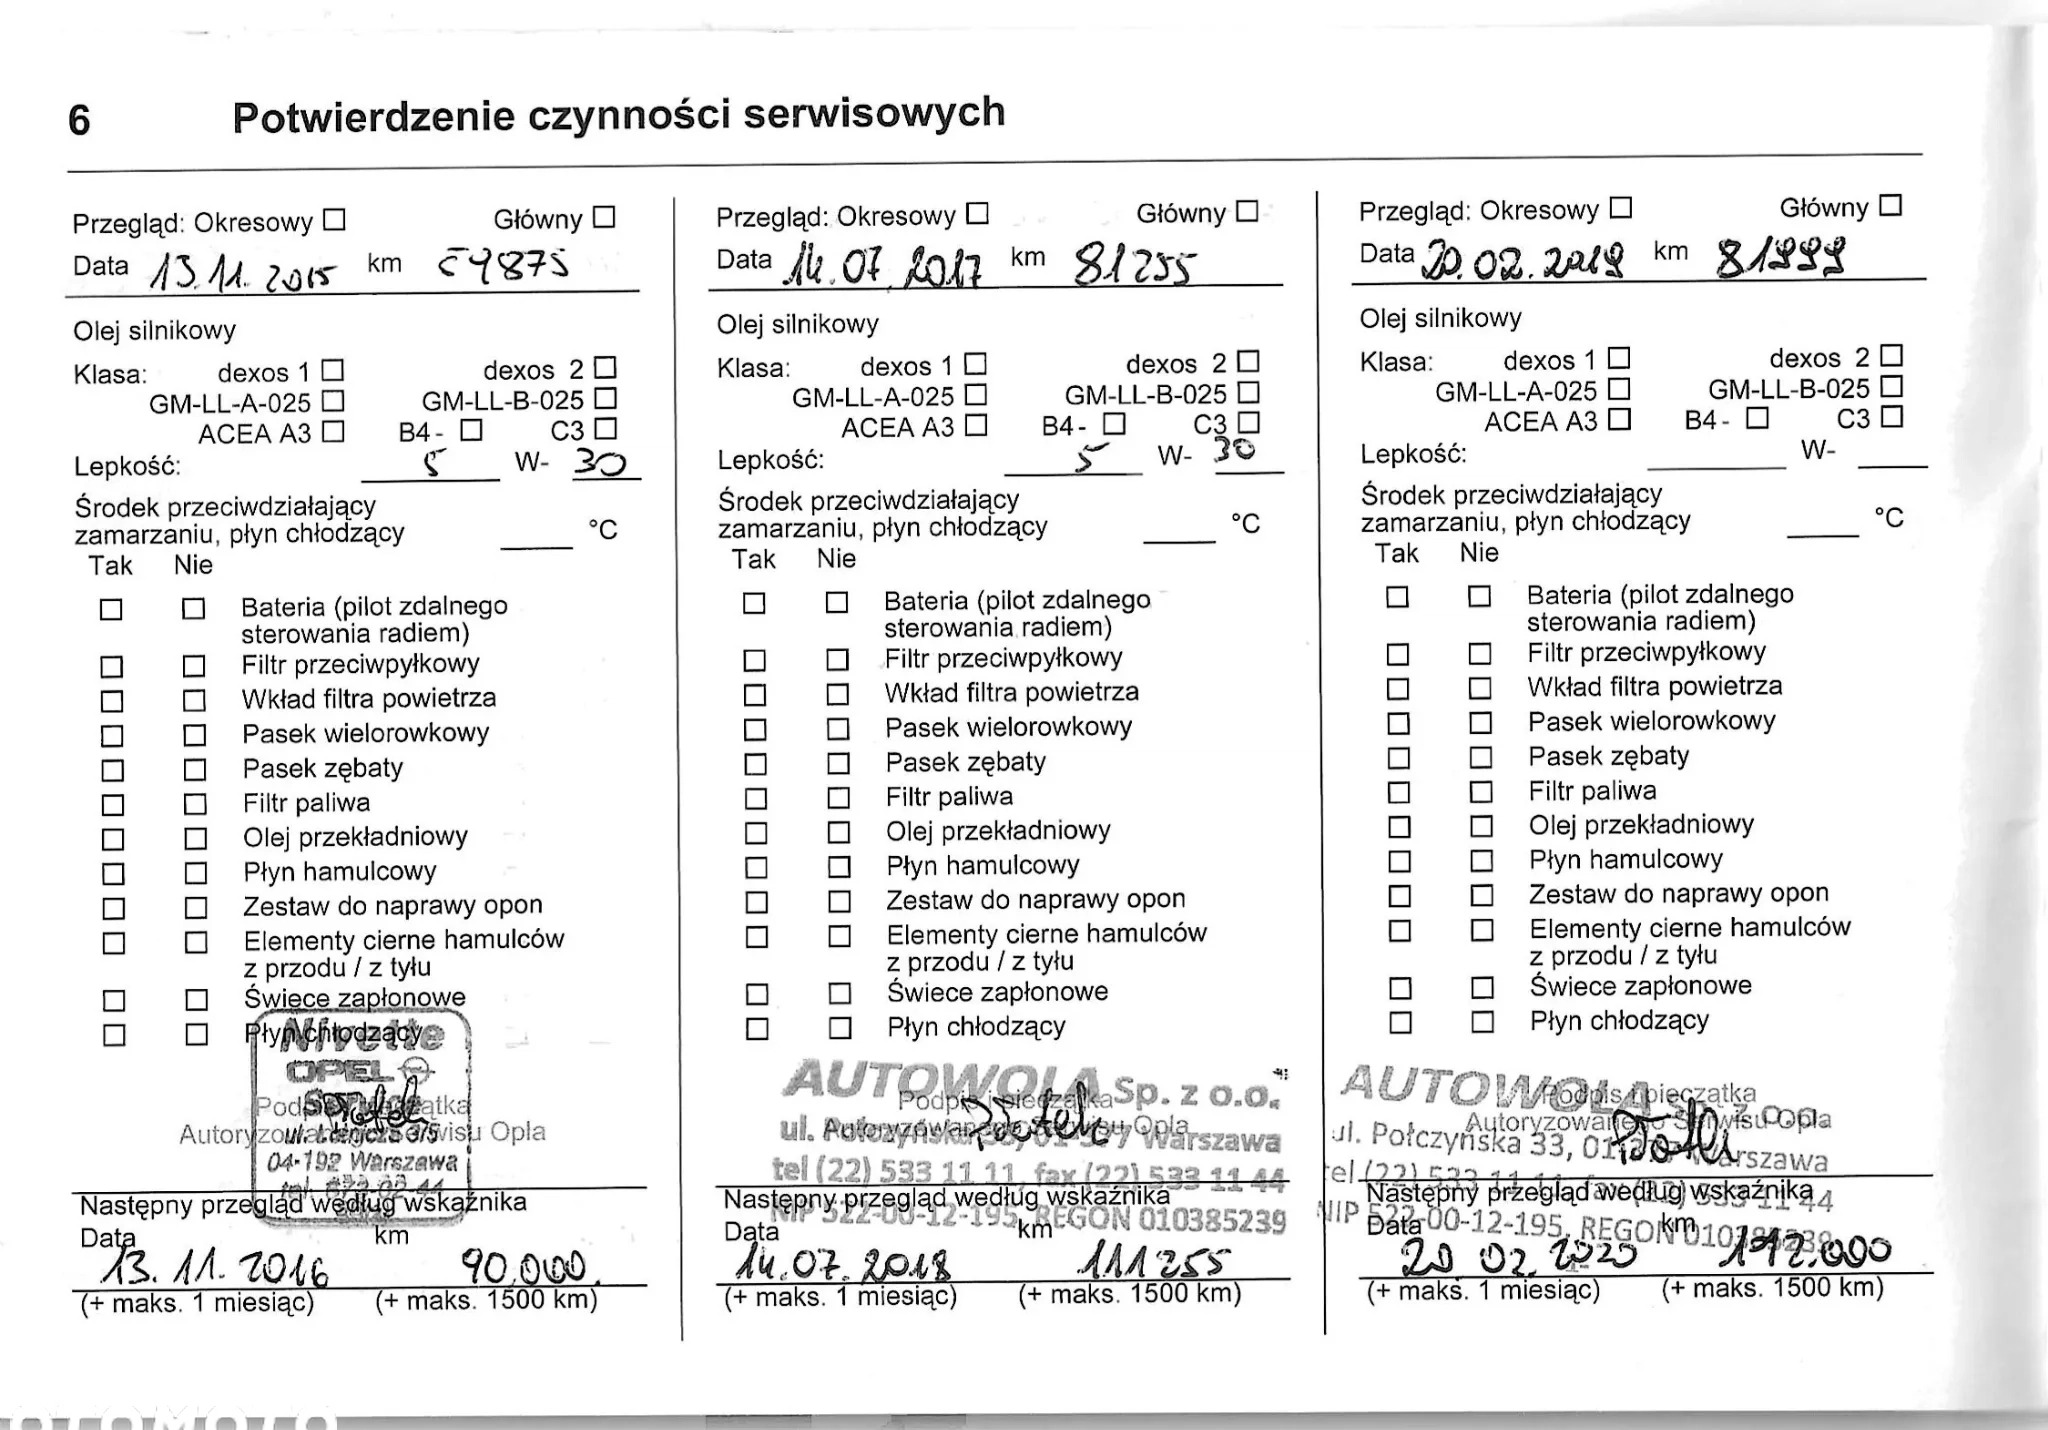 6 Potwierdzenie czynności serwisowych
Przegląd: Okresowy ☐ Główny ☐
Data 13.11.2015 km 64875
Olej silnikowy
Klasa: dexos 1 ☐ dexos 2 ☐
GM-LL-A-025 ☐ GM-LL-B-025 ☐
ACEA A3 ☐ B4- ☐ C3 ☐
Lepkość: 5 W- 30
Środek przeciwdziałający
zamarzaniu, płyn chłodzący ____ °C
Tak Nie
☐ ☐ Bateria (pilot zdalnego
sterowania radiem)
☐ ☐ Filtr przeciwpyłkowy
☐ ☐ Wkład filtra powietrza
☐ ☐ Pasek wielorowkowy
☐ ☐ Pasek zębaty
☐ ☐ Filtr paliwa
☐ ☐ Olej przekładniowy
☐ ☐ Płyn hamulcowy
☐ ☐ Zestaw do naprawy opon
☐ ☐ Elementy cierne hamulców
z przodu / z tyłu
☐ ☐ Świece zapłonowe
☐ ☐ Płyn chłodzący
Nivette
OPEL
Autoryzowanego Serwisu Opla
04-192 Warszawa
Następny przegląd według wskaźnika
Data km
13.11.2016 90.000
(+ maks. 1 miesiąc) (+ maks. 1500 km)
Przegląd: Okresowy ☐ Główny ☐
Data 14.07.2017 km 81255
Olej silnikowy
Klasa: dexos 1 ☐ dexos 2 ☐
GM-LL-A-025 ☐ GM-LL-B-025 ☐
ACEA A3 ☐ B4- ☐ C3 ☐
Lepkość: 5 W- 30
Środek przeciwdziałający
zamarzaniu, płyn chłodzący ____ °C
Tak Nie
☐ ☐ Bateria (pilot zdalnego
sterowania radiem)
☐ ☐ Filtr przeciwpyłkowy
☐ ☐ Wkład filtra powietrza
☐ ☐ Pasek wielorowkowy
☐ ☐ Pasek zębaty
☐ ☐ Filtr paliwa
☐ ☐ Olej przekładniowy
☐ ☐ Płyn hamulcowy
☐ ☐ Zestaw do naprawy opon
☐ ☐ Elementy cierne hamulców
z przodu / z tyłu
☐ ☐ Świece zapłonowe
☐ ☐ Płyn chłodzący
AUTOWOLA Sp. z o.o.
Podpis i pieczątka
ul. Połczyńska 33, Warszawa
Autoryzowanego Serwisu Opla
tel (22) 533 11 11, fax (22) 533 11 44
Następny przegląd według wskaźnika
NIP 522-00-12-195, REGON 010385239
Data km
14.07.2018 111255
(+ maks. 1 miesiąc) (+ maks. 1500 km)
Przegląd: Okresowy ☐ Główny ☐
Data 20.02.2019 km 81999
Olej silnikowy
Klasa: dexos 1 ☐ dexos 2 ☐
GM-LL-A-025 ☐ GM-LL-B-025 ☐
ACEA A3 ☐ B4- ☐ C3 ☐
Lepkość: ____ W- ____
Środek przeciwdziałający
zamarzaniu, płyn chłodzący ____ °C
Tak Nie
☐ ☐ Bateria (pilot zdalnego
sterowania radiem)
☐ ☐ Filtr przeciwpyłkowy
☐ ☐ Wkład filtra powietrza
☐ ☐ Pasek wielorowkowy
☐ ☐ Pasek zębaty
☐ ☐ Filtr paliwa
☐ ☐ Olej przekładniowy
☐ ☐ Płyn hamulcowy
☐ ☐ Zestaw do naprawy opon
☐ ☐ Elementy cierne hamulców
z przodu / z tyłu
☐ ☐ Świece zapłonowe
☐ ☐ Płyn chłodzący
AUTOWOLA Sp. z o.o.
Podpis i pieczątka
Autoryzowanego Serwisu Opla
ul. Połczyńska 33, Warszawa
tel (22) 533 11 11, fax (22) 533 11 44
Następny przegląd według wskaźnika
NIP 522-00-12-195, REGON 010385239
Data km
20 02. 2020 112.000
(+ maks. 1 miesiąc) (+ maks. 1500 km)
OTOMOTO